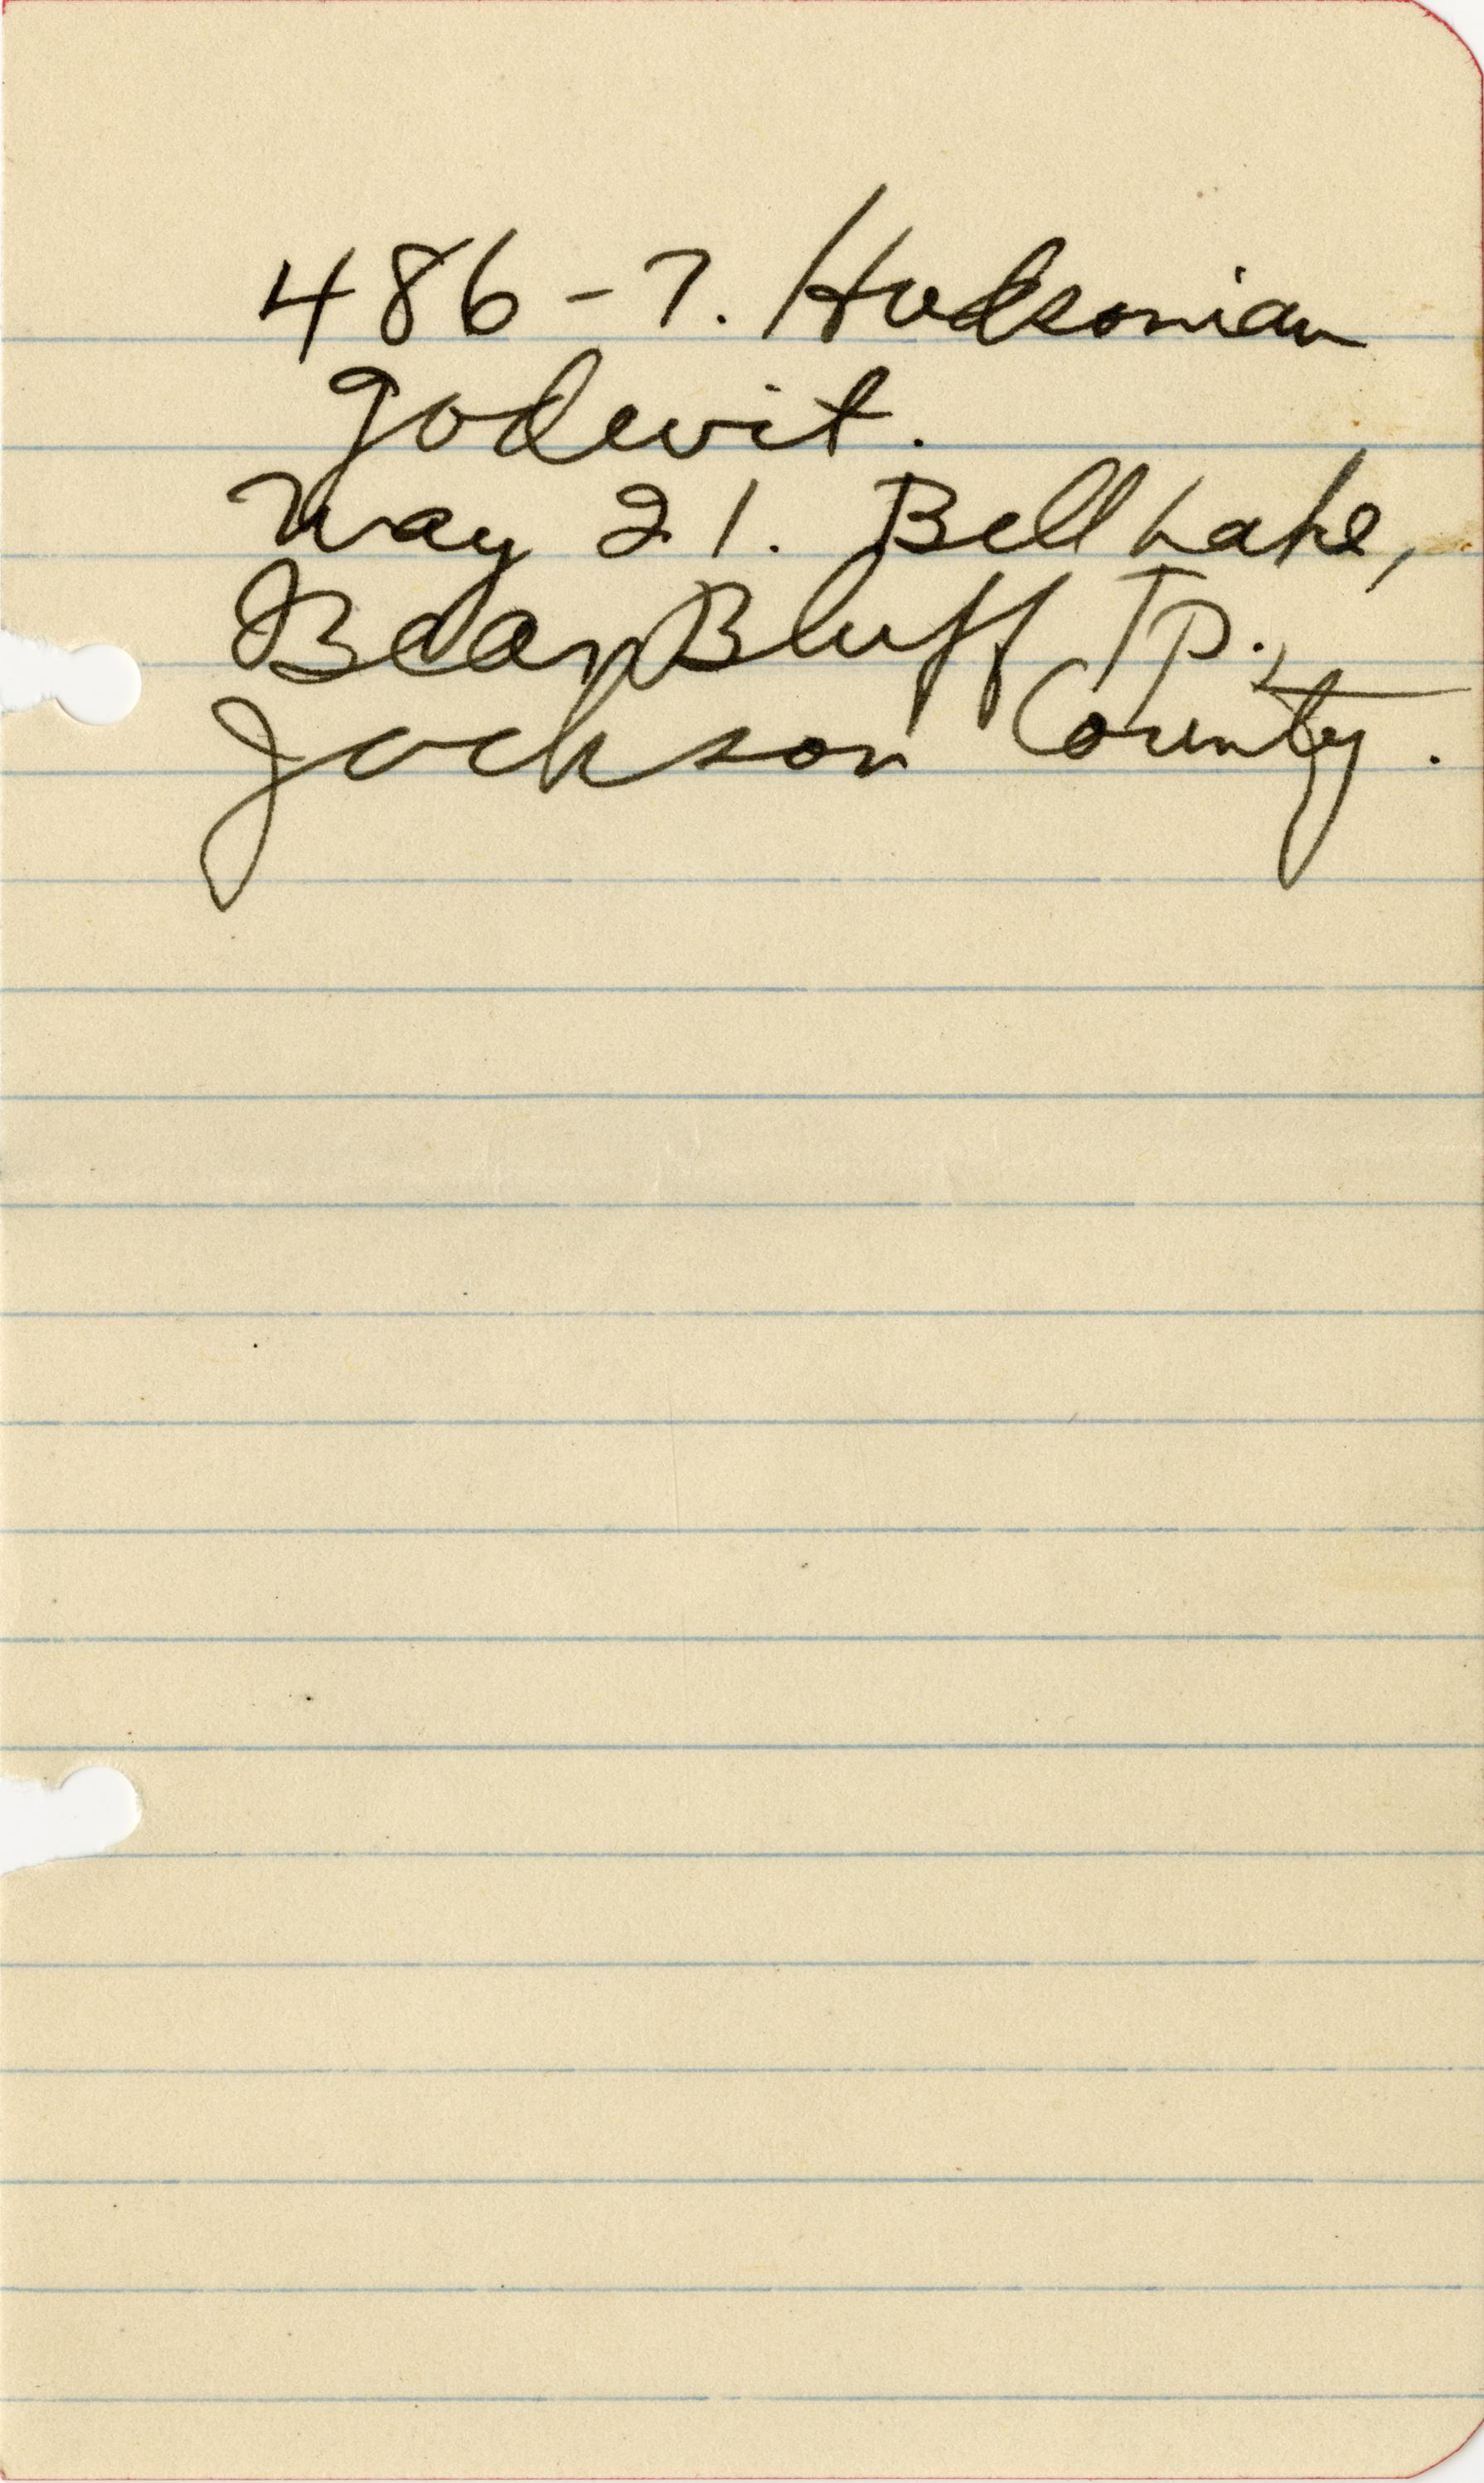 486-7. Hudsonian
godwit.
May 21. Bell Lake,
Bear Bluff Tp.,
Jackson County.